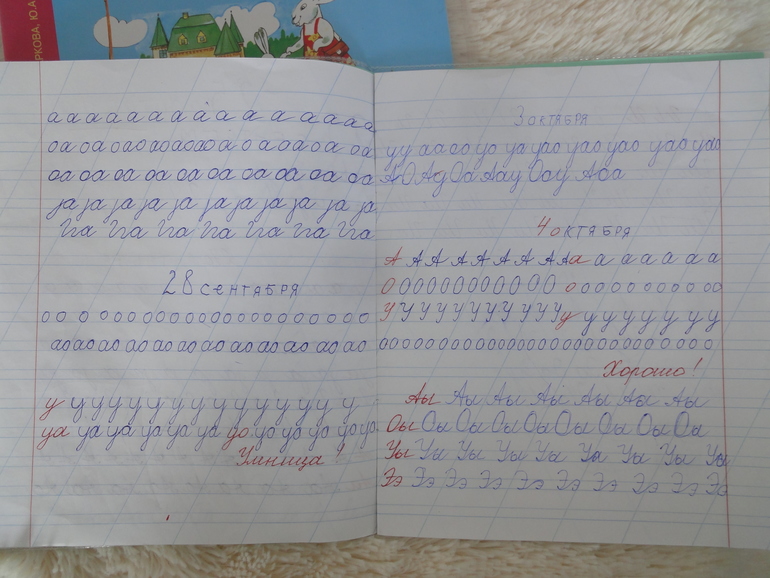 РКОВА, Ю.А
а а а а а а а а а а а а а а а
оа оа оа оа оа оа оа оа оа оа оа
оа оа оа оа оа оа оа оа оа оа оа
уа уа уа уа уа уа уа уа уа уа уа
Уа Уа Уа Уа Уа Уа Уа
28 СЕНТАБРЯ
о о о о о о о о о о о о о о о о о о о о о о
ао ао ао ао ао ао ао ао ао ао ао
у у у у у у у у у у у у у у у
уа уа уа уа уа уа уо уо уо уо уо уо
Умница!
3 ОКТЯБРЯ
уу аа оо уо уа уао уао уао уао уао
АО Ау Оа Аау Оау Аоа
4 ОКТЯБРЯ
А А А А А А А А А а а а а а а а
О О О О О О О О О О О О о о о о о о о о о о
У У У У У У У У У У У У у у у у у у у у
о о о о о о о о о о о о о о о о о о о о о о о о о
Хорошо!
Аы Аы Аы Аы Аы Аы Аы
Оы Оы Оы Оы Оы Оы Оы Оы
Уы Уы Уы Уы Уы Уы Уы Уы Уы
Ээ Ээ Ээ Ээ Ээ Ээ Ээ Ээ Ээ